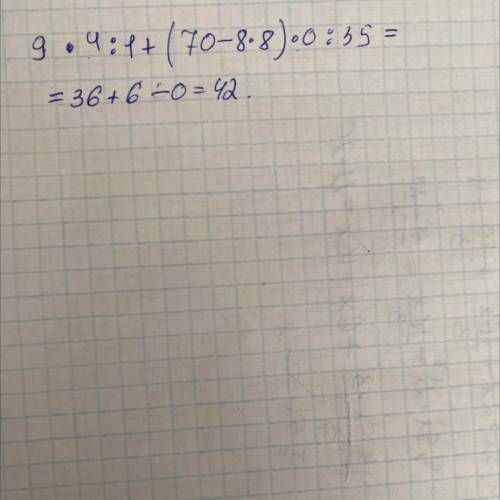 9 · 4 : 1 + (70 - 8 · 8) · 0 : 35 =
= 36 + 6 - 0 = 42.